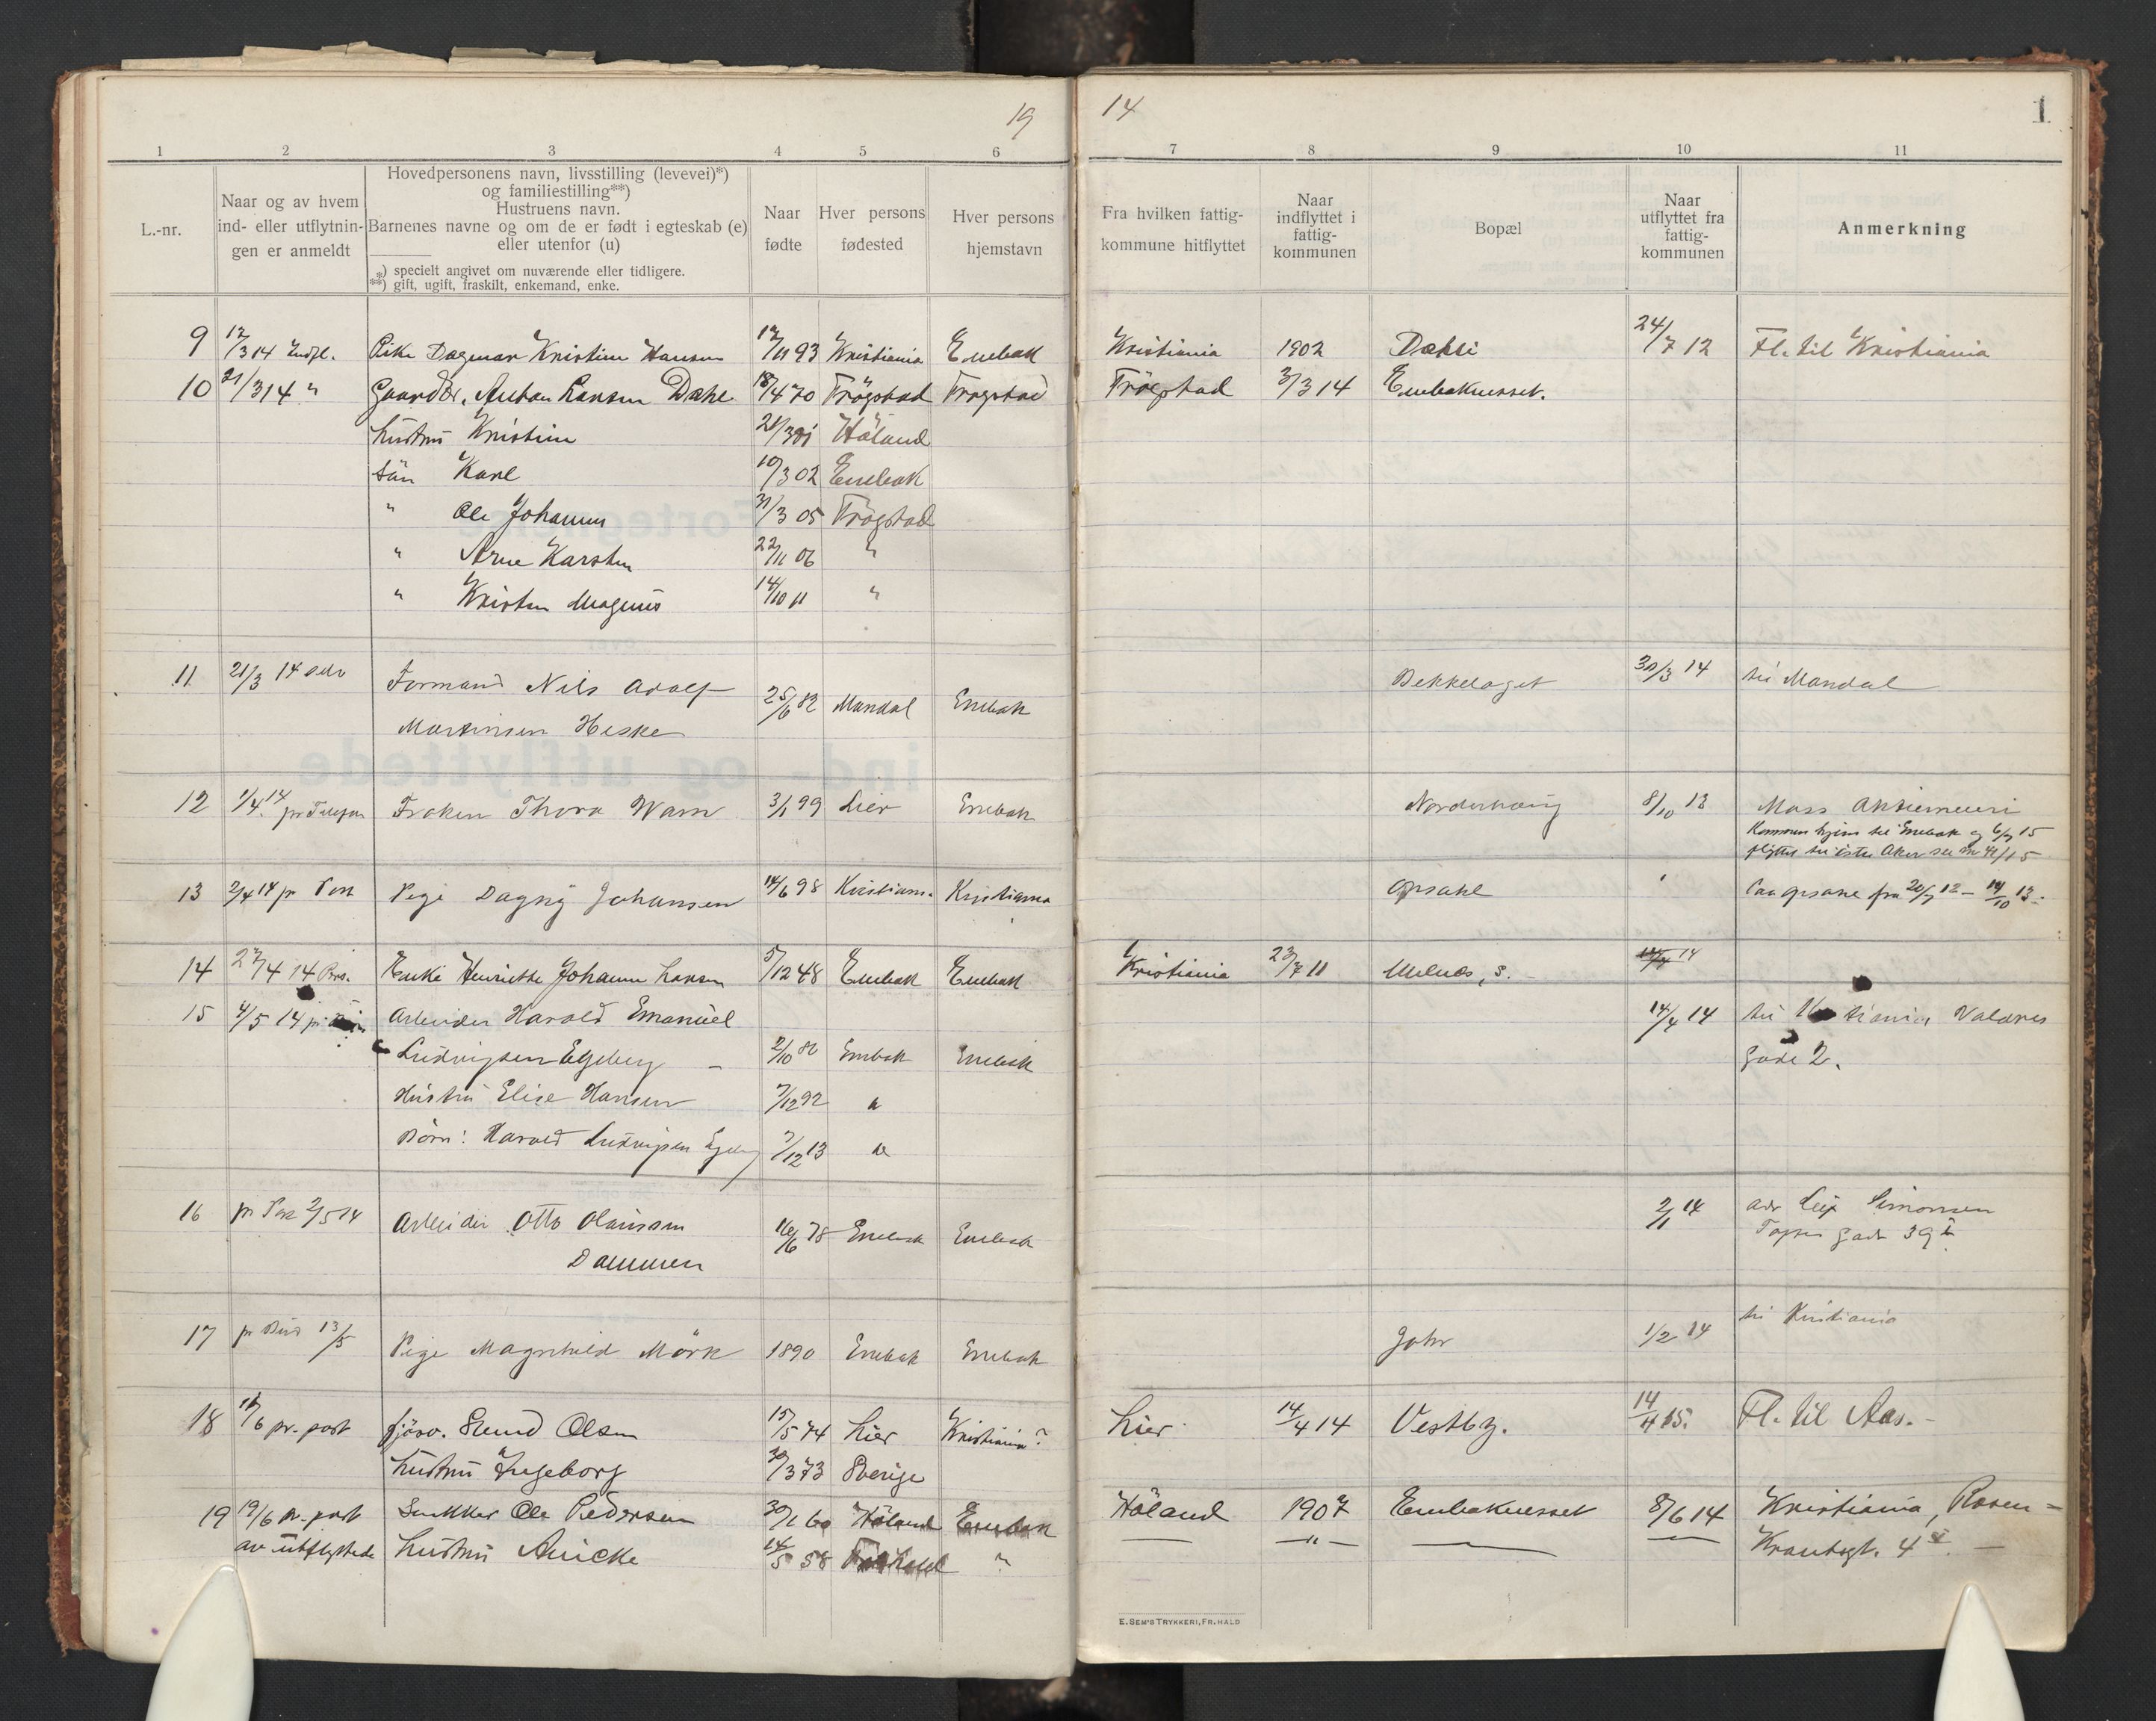 19
14
1
1 2 3 4 5 6
7 8 9 10 11
L.-nr.
Naar og av hvem
ind- eller utflytnin-
gen er anmeldt
Hovedpersonens navn, livsstilling (levevei)*)
og familiestilling**)
Hustruens navn.
Barnenes navne og om de er født i egteskab (e)
eller utenfor (u)
*) specielt angivet om nuværende eller tidligere.
**) gift, ugift, fraskilt, enkemand, enke.
Naar
fødte
Hver persons
fødested
Hver persons
hjemstavn
Fra hvilken fattig-
kommune hitflyttet
Naar
indflyttet i
fattig-
kommunen
Bopæl
Naar
utflyttet fra
fattig-
kommunen
Anmerkning
9 17/3 14 Indfl. Pike Dagmar Kristine Hansen 17/11 93 Kristiania Enebak Kristiania 1902 Dæhli 24/7 12 Fl. til Kristiania
10 21/3 14 " Gaardbr. Anton Hansen Dahl 18/4 70 Trögstad Trögstad Trögstad 3/3 14 Enebaknesset.
hustru Kristine Höland
sön Karl 10/3 02 Enebak
" Ole Johannes 31/3 05 Trögstad
" Arne Karsten 22/11 06 "
" Kristen Magnus 14/10 11 "
11 21/3 14 Formand Nils Adolf Bekkelaget 30/3 14 til Mandal
Martinsen Heske 25/6 82 Mandal Enebak
12 1/4 14 pr Telefon Fröken Thora Warn 3/1 99 Lier Enebak Norderhaug 8/10 13 Moss Aktiemeieri
Kommen hjem til Enebak og 6/7 15
flyttet til Aker se nr 41/15
13 2/4 14 pr Post Pige Dagny Johansen 14/6 98 Kristiania Kristiania Opsahl ' Paa Opsahl fra 20/7 12 – 14/10 13.
14 27/4 14 Pers. Enke Henriette Johanne Larsen 5/12 48 Enebak Enebak Kristiania 23/7 11 s. 14
15 4/5 14 pr Arbeider Harald Emanuel 14/4 14 til Kristiania Valdres
Ludvigsen Egeberg – 2/10 86 Enebak Enebak gade 2.
Hustru Elise Hansen 7/12 92 "
Börn: Harald Ludvigsen Egeberg 7/12 13 "
16 pr Post 7/5 14 Arbeider Otto Olaussen 16/6 78 Enebak Enebak 2/11 14 adr Leif Simonsen
Dammen gade 39
17 pr Bud 13/5 Pige Magnhild Mörk 1890 Enebak Enebak Gohr 1/2 14 til Kristiania
18 /6 pr. post Olsen 15/5 74 Lier Kristiania? Lier 14/4 14 Vestby. 14/4 15. Fl. til Aas. –
hustru Ingeborg 30/3 73 Sverige
19 19/6 pr. post Snekker Ole Pedersen 30/1 60 Höland Enebak Höland 1907 Enebaknesset 8/6 14 Kristiania, Rosen=
av utflyttede hustru Anicke 14/5 58 " — –"– — — Krantsgt. 4 –
E. SEM'S TRYKKERI, FR.HALD